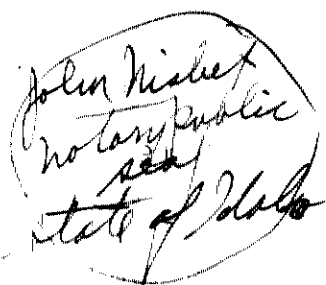 John Nisbet
notary public
seal
state of Idaho